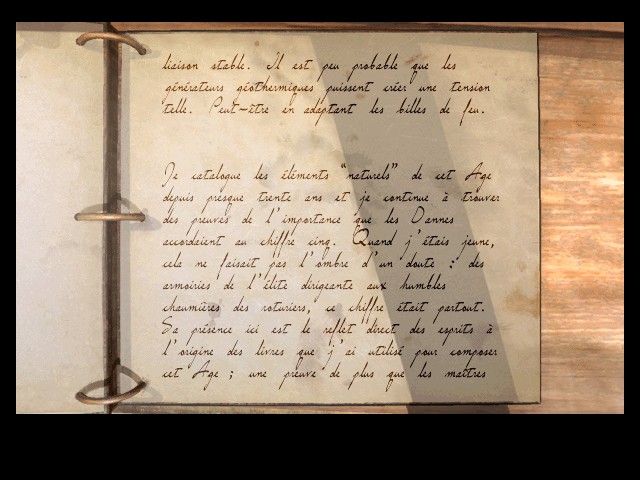 liaison stable. Il est peu probable que les
générateurs géothermiques puissent créer une tension
telle. Peut-être en adaptant les billes de feu.
Je catalogue les éléments "naturels" de cet Age
depuis presque trente ans et je continue à trouver
des preuves de l'importance que les Dannes
accordaient au chiffre cinq. Quand j'étais jeune,
cela ne faisait pas l'ombre d'un doute : des
armoiries de l'élite dirigeante aux humbles
chaumières des roturiers, ce chiffre était partout.
Sa présence ici est le reflet direct des esprits à
l'origine des livres que j'ai utilisé pour composer
cet Age ; une preuve de plus que les maîtres